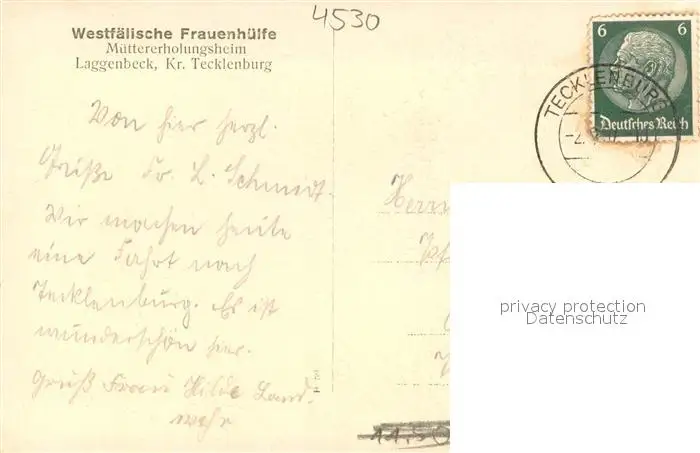 4530
Westfälische Frauenhülfe
Müttererholungsheim
Laggenbeck, Kr. Tecklenburg
6 6
Deutsches Reich
TECKLENBURG
Von hier herzl.
Grüße Fr. L. Schmidt.
Wir machen heute
eine Fahrt nach
Tecklenburg. Es ist
wunderschön hier.
Gruß Frau Hilde Land-
wehr
Herrn
privacy protection
Datenschutz
11,50